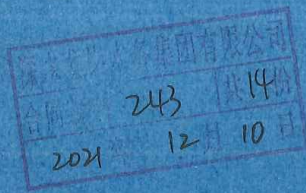 集团有限公司
合同 243 共14份
2021 12月10日